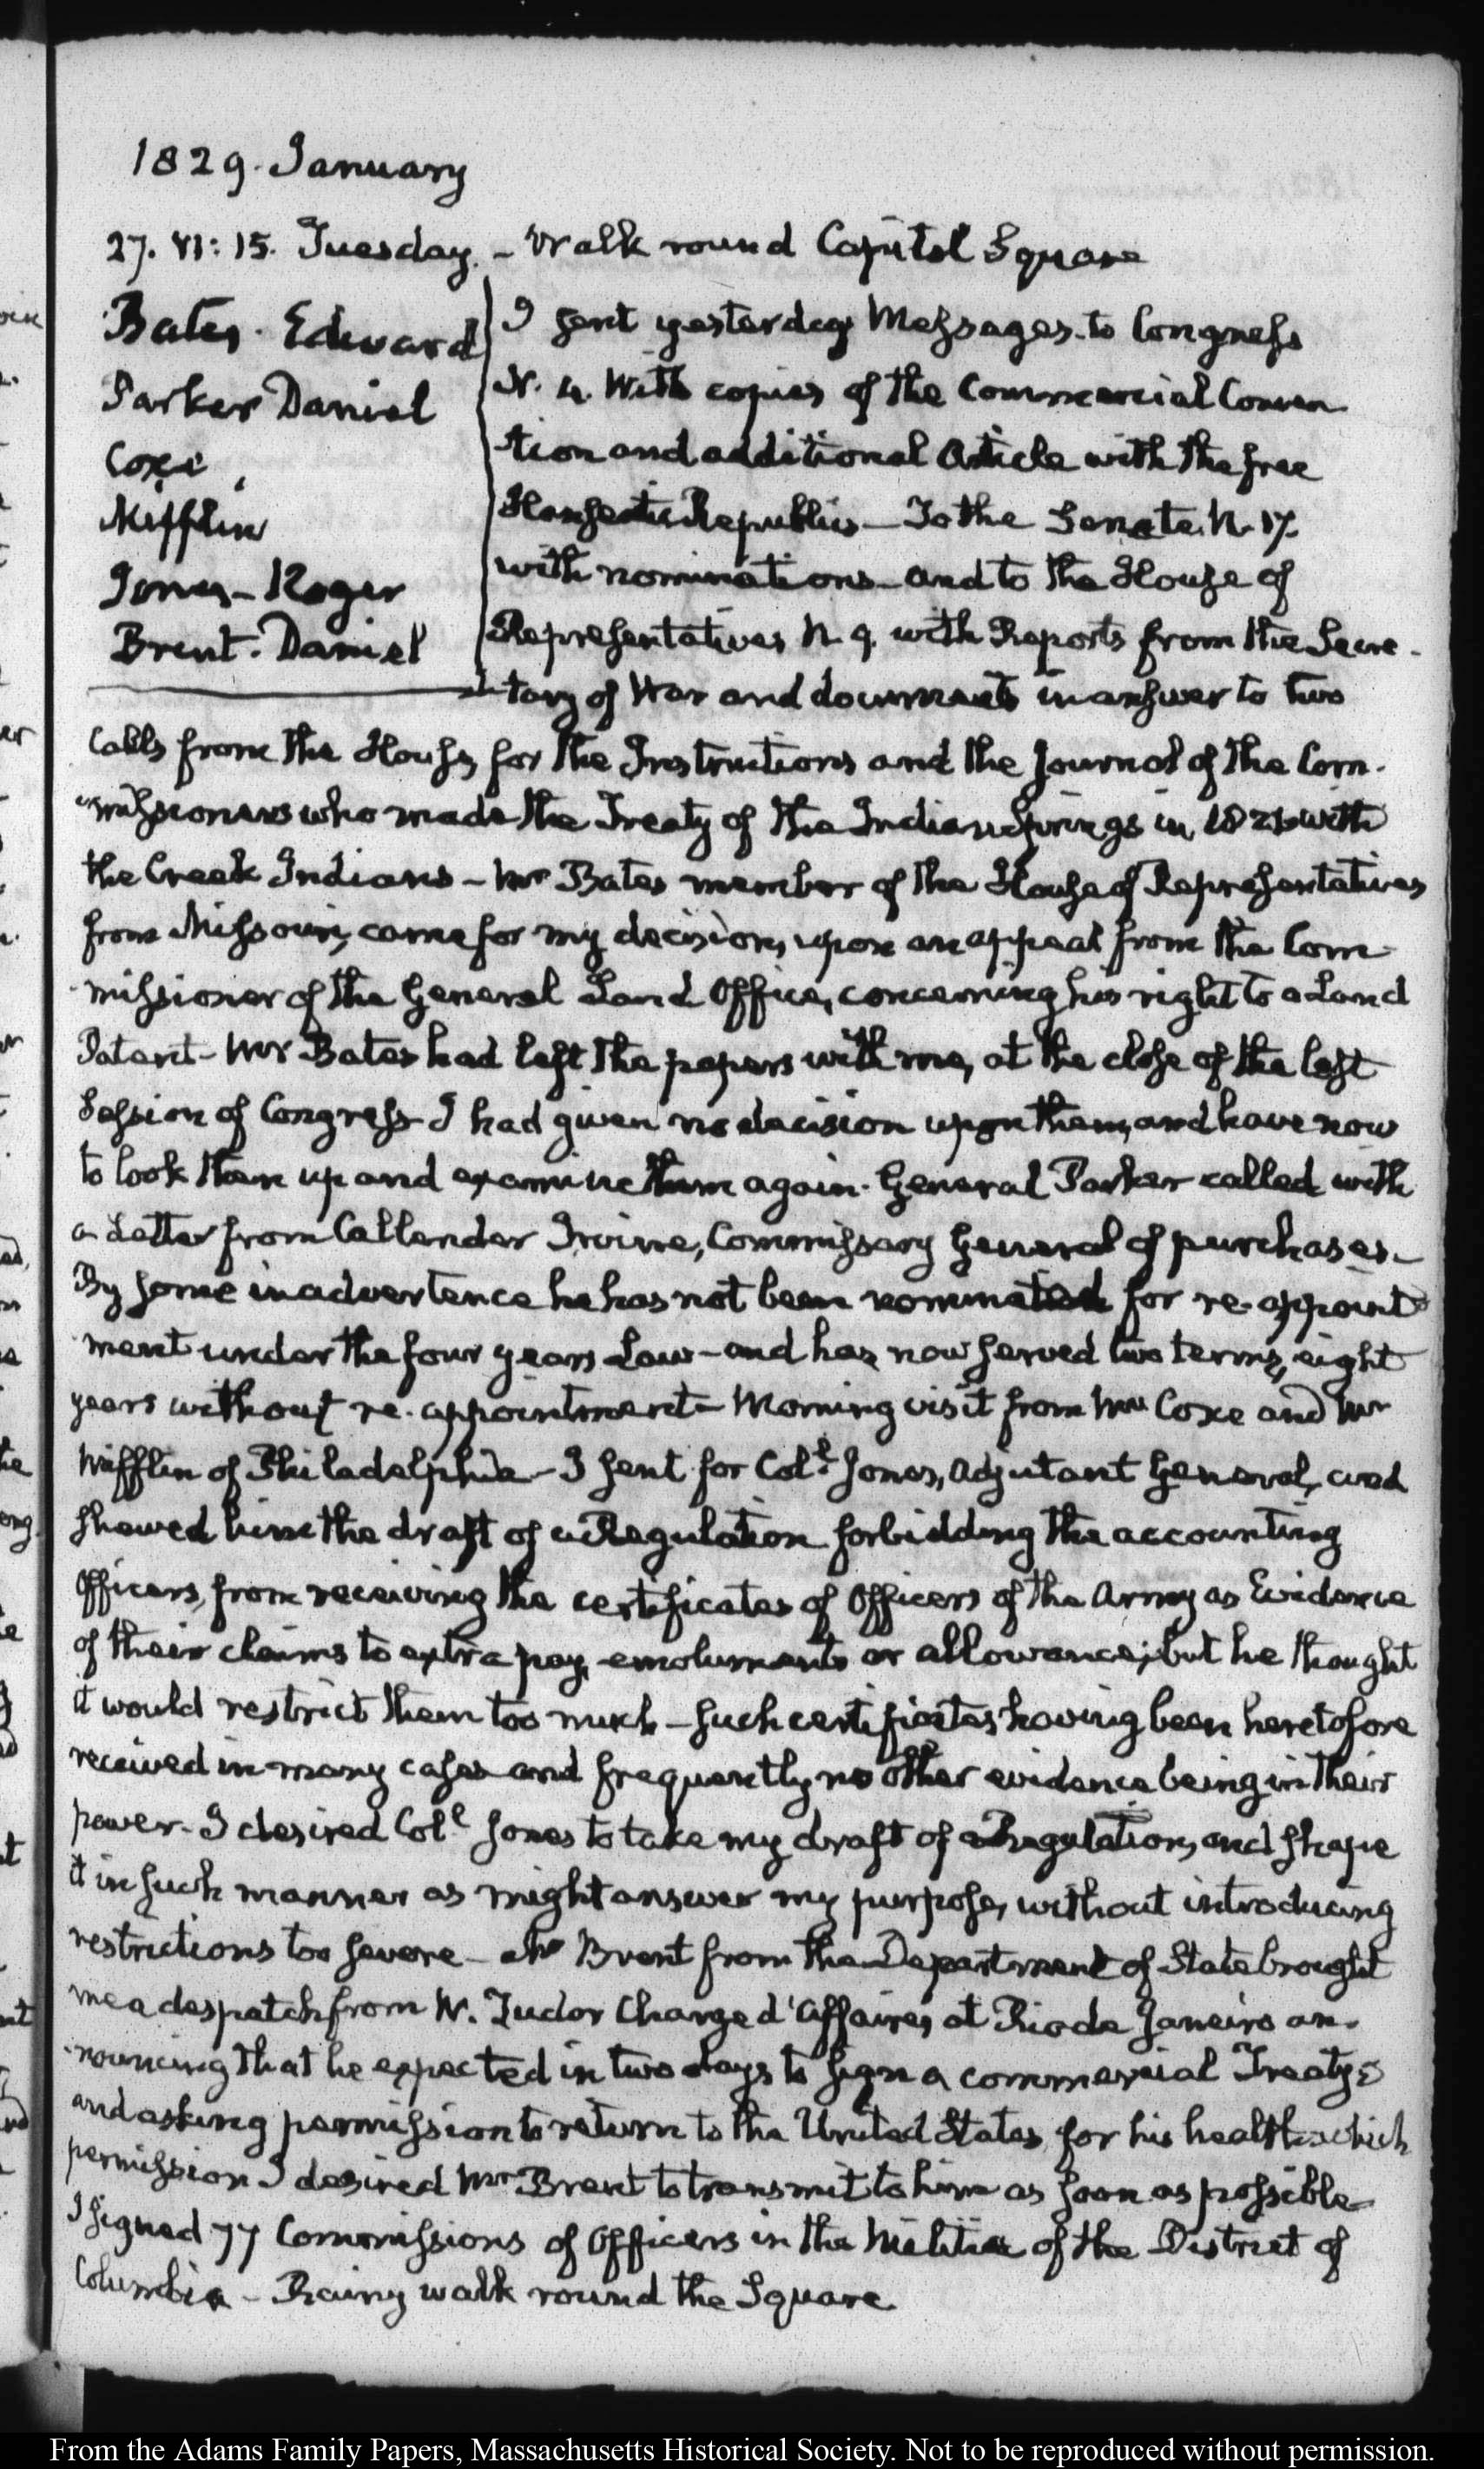 1829. January
27. VI: 15. Tuesday. - Walk round Capitol Square
Bates. Edward
Parker Daniel
Coxe
Mifflin
Jones - Roger
Brent. Daniel
I sent yesterday Messages to Congress
N. 4. With copies of the Commercial Conven
tion and additional Article with the free
Hanseatic Republics — To the Senate. N. 17.
with nominations — and to the House of
Representatives N. 9. with Reports from the Secre-
tary of War and documents in answer to two
Calls from the House, for the Instructions and the Journal of the Com-
missioners who made the Treaty of the Indian Springs in 1821 with
the Creek Indians - Mr Bates member of the House of Representatives
from Missouri, came for my decision, upon an appeal from the Com-
missioner of the General Land Office, concerning his right to a Land
Patent - Mr Bates had left the papers with me, at the close of the last
Session of Congress - I had given no decision upon them, and have now
to look them up and examine them again. General Parker called with
a Letter from Callender Irvine, Commissary General of purchases.-
By some inadvertence he has not been nominated for re-appoint
ment under the four years Law - and has now served two terms, eight
years without re-appointment - Morning visit from Mr Coxe and Mr
Mifflin of Philadelphia - I sent for Coll. Jones, Adjutant General, and
shewed him the draft of a Regulation forbidding the accounting
Officers, from receiving the certificates of Officers of the Army as Evidence
of their claims to extra pay, emoluments or allowance; but he thought
it would restrict them too much - such certificates having been heretofore
received in many cases and frequently no other evidence being in their
power - I desired Coll Jones to take my draft of a Regulation, and shape
it in such manner as might answer my purpose, without introducing
restrictions too severe - Mr Brent from the Department of State brought
me a despatch from W. Tudor Charge d'Affaires at Rio de Janeiro an-
nouncing that he expected in two days to sign a commercial Treaty;
and asking permission to return to the United States, for his health: which
permission I desired Mr Brent to transmit to him as soon as possible-
I signed 77 Commissions of Officers in the Militia of the District of
Columbia - Rainy walk round the Square
From the Adams Family Papers, Massachusetts Historical Society. Not to be reproduced without permission.